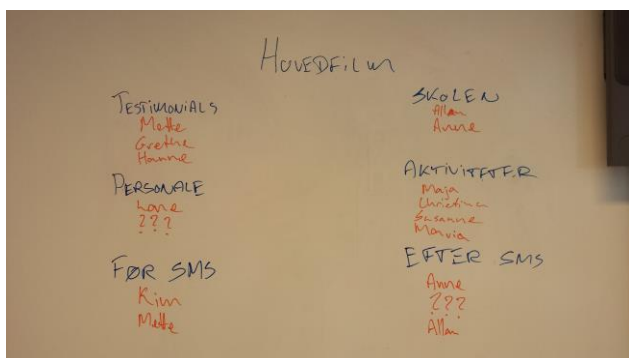 HOVEDFILM
TESTIMONIALS
Mette
Grethe
Hanne
PERSONALE
Lone
???
FØR SMS
Kim
Mette
SKOLEN
Allan
Anne
AKTIVITETER
Maja
Christina
Susanne
EFTER SMS
Anne
???
Allan